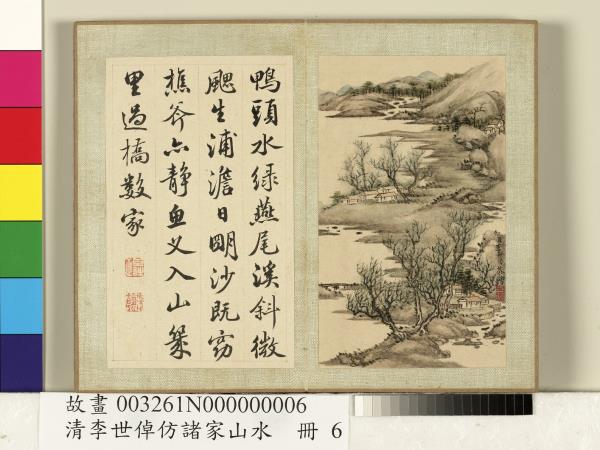 鴨頭水綠燕尾溪斜微
颸生浦澹日明沙既窈
樵斧亦静魚叉入山幾
里過橋數家
故畫 003261N000000006
清李世倬仿諸家山水 冊 6